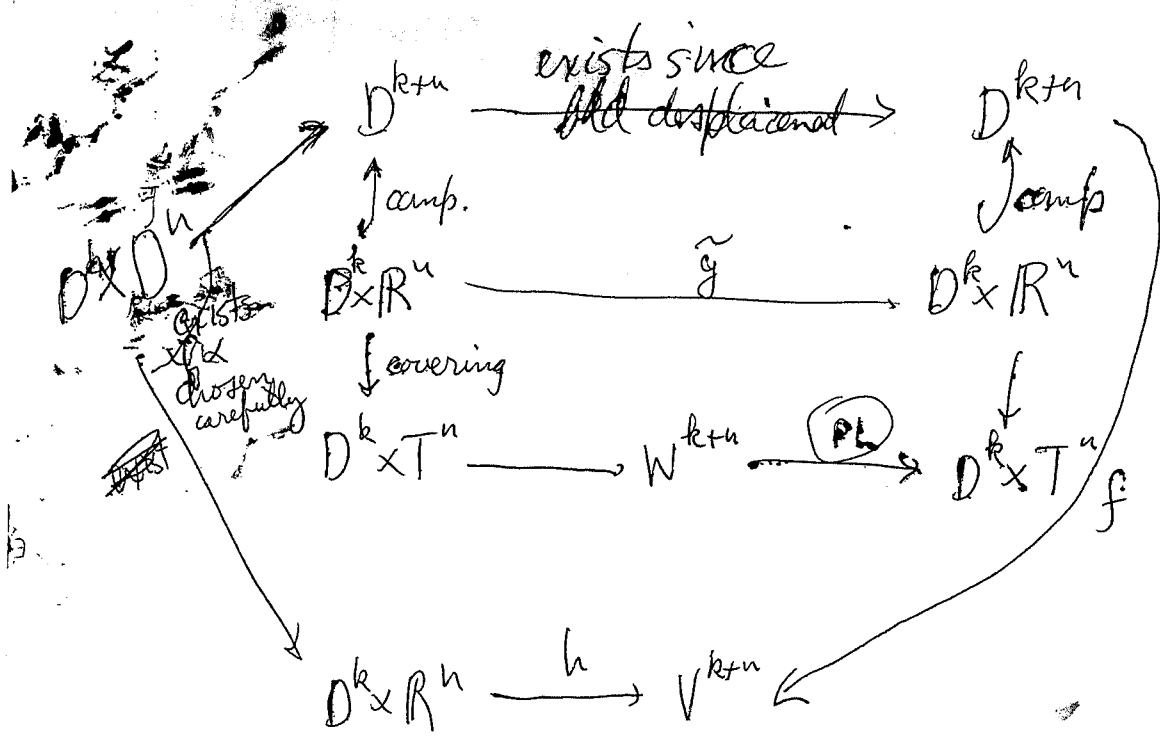 exists since
D^{k+n} bdd displacement D^{k+n}
comp. comp
D^k × D^n D^k × R^n g̃ D^k × R^n
exists
chosen
carefully
covering
D^k × T^n W^{k+n} PL D^k × T^n
f
D^k × R^n h V^{k+n}